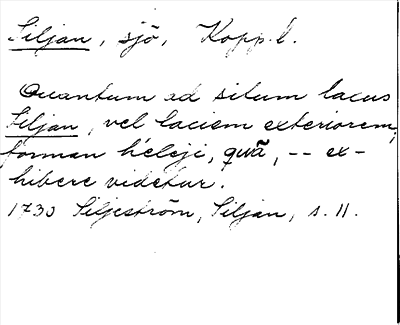 Siljan, sjö, Kopp. l.
Quantum ad situm lacus
Siljan, vel faciem exteriorem,
forman héleji, quã, -- ex-
hibere videtur.
1730 Siljeström, Siljan, s. 11.